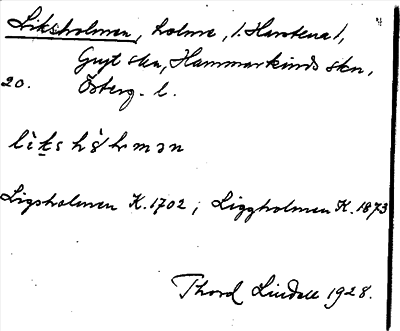 Liksholmen, holme, (Harstena),
Gryt skn, Hammarkinds skn,
20. Österg. l.
Ligsholmen K. 1702; Liggholmen K. 1873
Thord Lindell 1928.